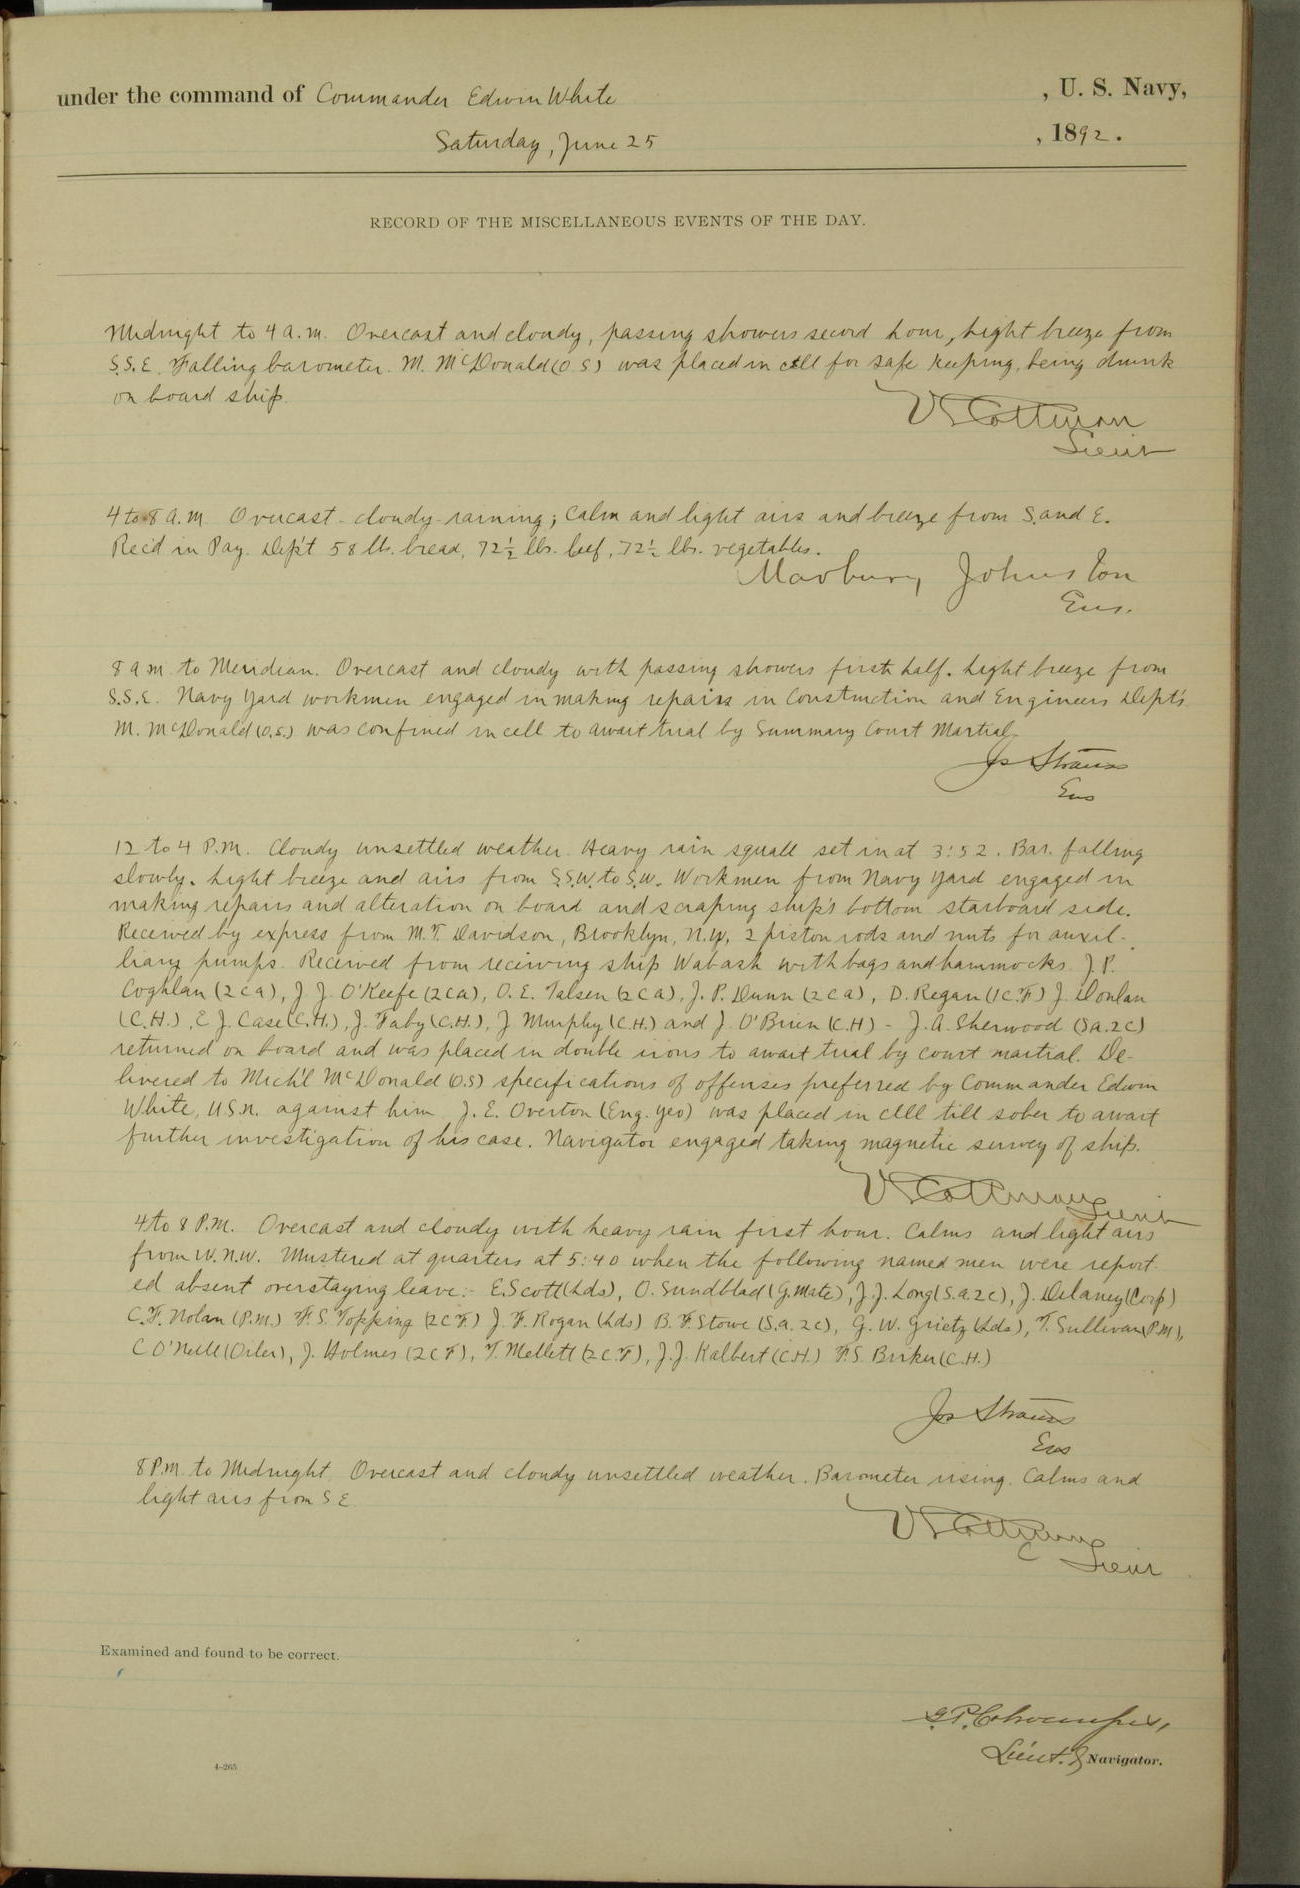 under the command of Commander Edwin White , U. S. Navy,
Saturday, June 25 , 1892.
RECORD OF THE MISCELLANEOUS EVENTS OF THE DAY.
Midnight to 4 a.m. Overcast and cloudy, passing showers second hour, light breeze from
S.S.E. Falling barometer. M. McDonald (O.S) was placed in cell for safe keeping, being drunk
on board ship.
V S Cottman
Lieut
4 to 8 a.m. Overcast - cloudy - raining; Calm and light airs and breeze from S. and E.
Rec'd in Pay. Dep't 58 lbs. bread, 72½ lbs. beef, 72½ lbs. vegetables.
Marbury Johnston
Ens.
8 a m. to Meridian. Overcast and cloudy with passing showers first half. Light breeze from
S.S.E. Navy Yard workmen engaged in making repairs in Construction and Engineers Dept's.
M. McDonald (O.S.) was confined in cell to await trial by Summary Court Martial.
Jos Strauss
Ens
12 to 4 P.M. Cloudy unsettled weather. Heavy rain squall set in at 3:52. Bar. falling
slowly. Light breeze and airs from S.S.W. to S.W. Workmen from Navy Yard engaged in
making repairs and alteration on board and scraping ship's bottom starboard side.
Received by express from M.T. Davidson, Brooklyn, N.Y. 2 piston rods and nuts for auxil-
liary pumps. Received from receiving ship Wabash with bags and hammocks J. P.
Coghlan (2 C a), J J. O'Keefe (2 C a), O. E. Talsen (2 C a), J. P. Dunn (2 C a), D. Regan (1 C. F) J. Donlan
(C.H.), E J. Case (C.H.), J. Faby (C.H.), J Murphy (C.H.) and J. O'Brien (C.H) - J. A. Sherwood (S.a. 2 C)
returned on board and was placed in double irons to await trial by court martial. De-
livered to Mich'l McDonald (O.S) specifications of offenses preferred by Commander Edwin
White, U.S.N. against him J. E. Overton (Eng. Yeo) was placed in cell till sober to await
further investigation of his case. Navigator engaged taking magnetic survey of ship.
V S Cottman Lieut
4 to 8 P.M. Overcast and cloudy with heavy rain first hour. Calms and light airs
from W.N.W. Mustered at quarters at 5:40 when the following named men were report-
ed absent overstaying leave:- E. Scott (Lds), O. Sundblad (G. Mate), J. J. Long (S.a. 2 C), J. Delaney (Corp)
C. F. Nolan (P.M.) F. S. Topping (2 C F.) J. F. Rogan (Lds) B. F. Stowe (S.a. 2 C), G. W. Grietz (Lds), T. Sullivan (P.M.),
C O'Neill (Oiler), J. Holmes (2 C F), T. Mellett (2 C. F), J. J. Kalbert (C.H.) F. S. Birker (C.H.)
Jos Strauss
Ens
8 P.M. to Midnight. Overcast and cloudy unsettled weather. Barometer rising. Calms and
light airs from S E.
V S Cottman
Lieut
Examined and found to be correct.
Lieut. & Navigator.
4-265